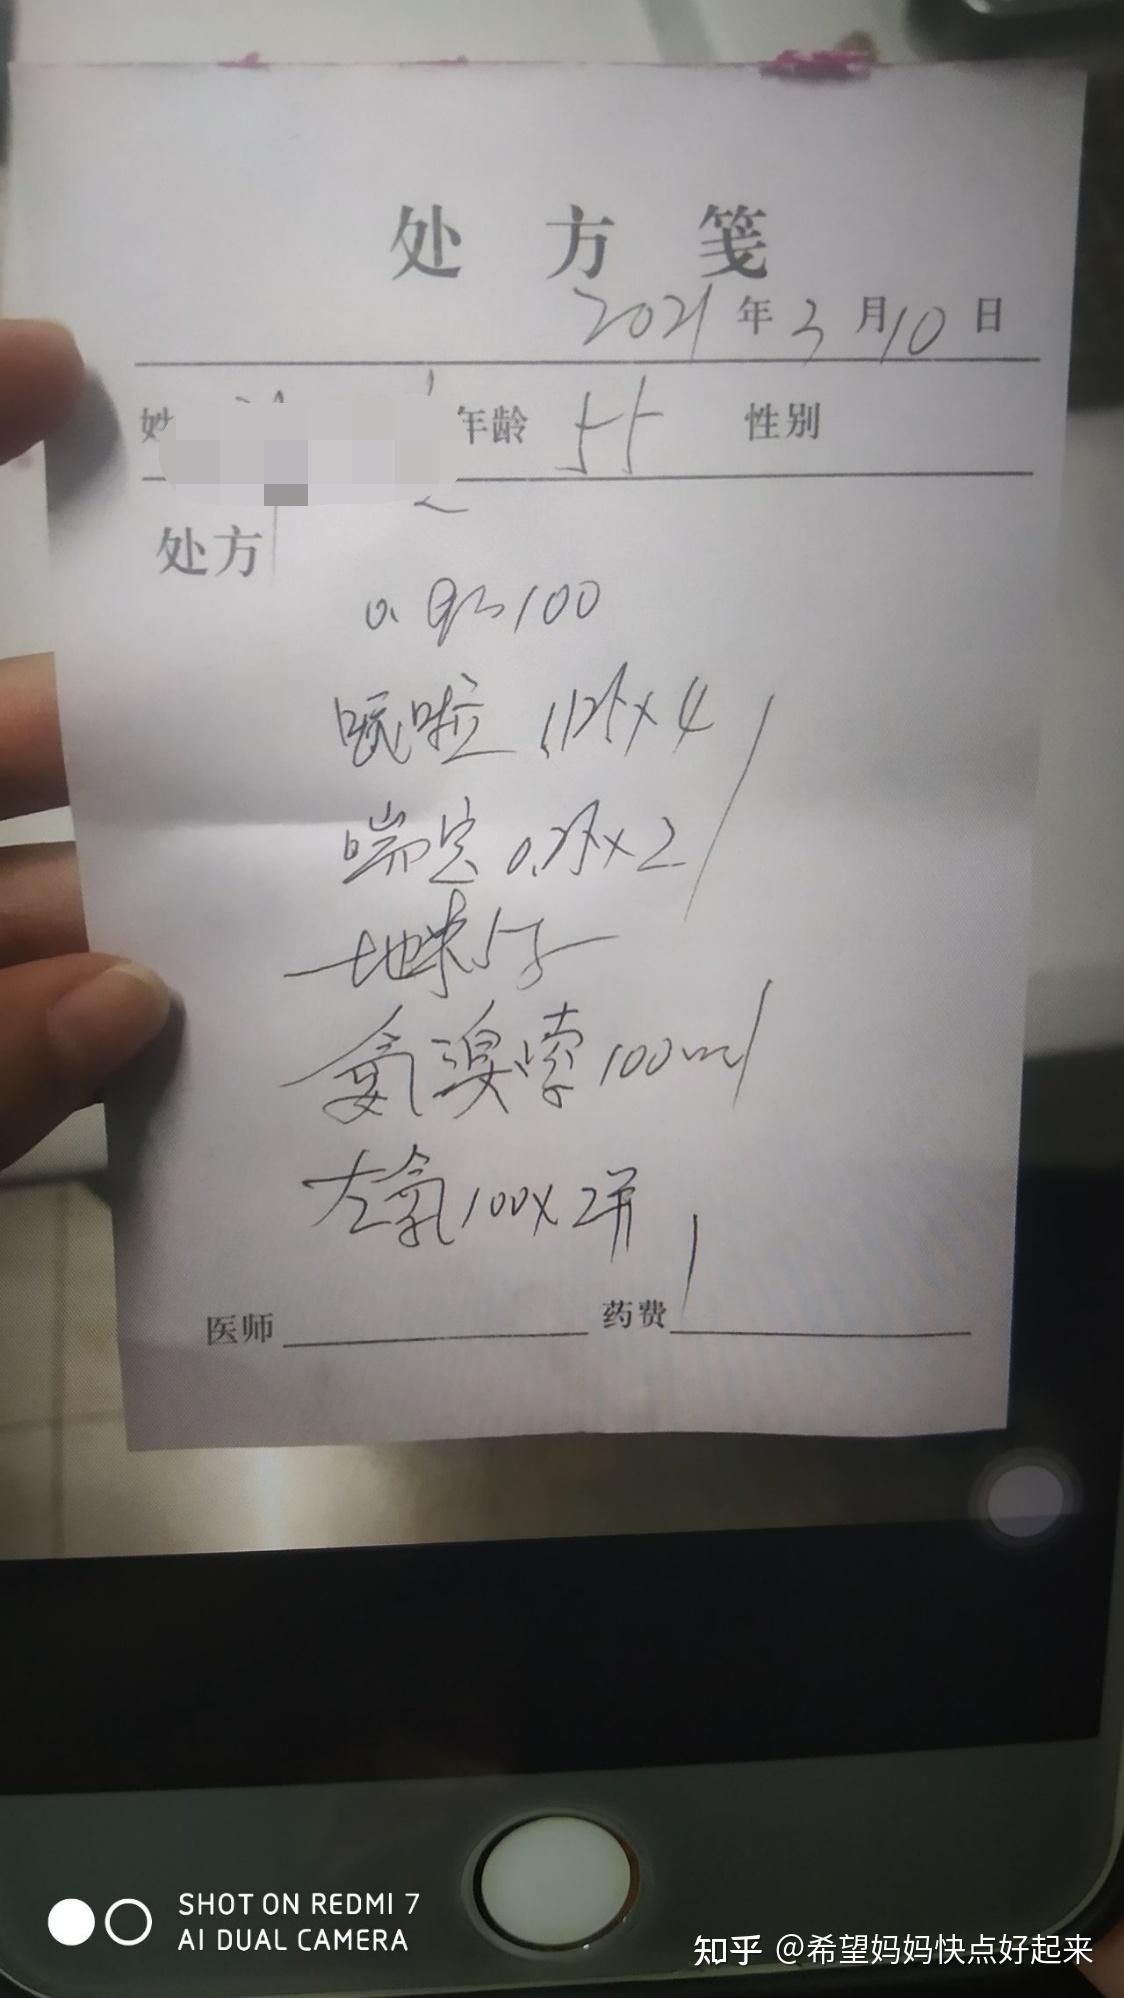 处方笺
2021年3月10日
姓 年龄 性别
处方
0.9% 100
哌啦 1.125×4
喘定 0.25×2
地米 5
氨溴索 100ml
左氧 100×2瓶
医师 药费
SHOT ON REDMI 7
AI DUAL CAMERA
知乎 @希望妈妈快点好起来